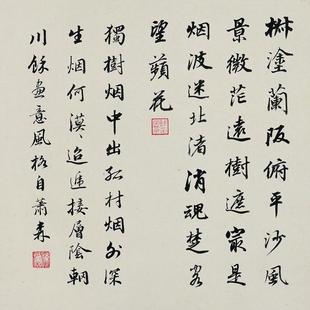 椒塗蘭阪俯平沙風
景微茫遠樹遮㝡是
烟波迷北渚消魂楚客
望蘋花
獨樹烟中出孤村烟外深
生烟何漠〻迢遞接層陰輞
川餘畫意風格自蕭森